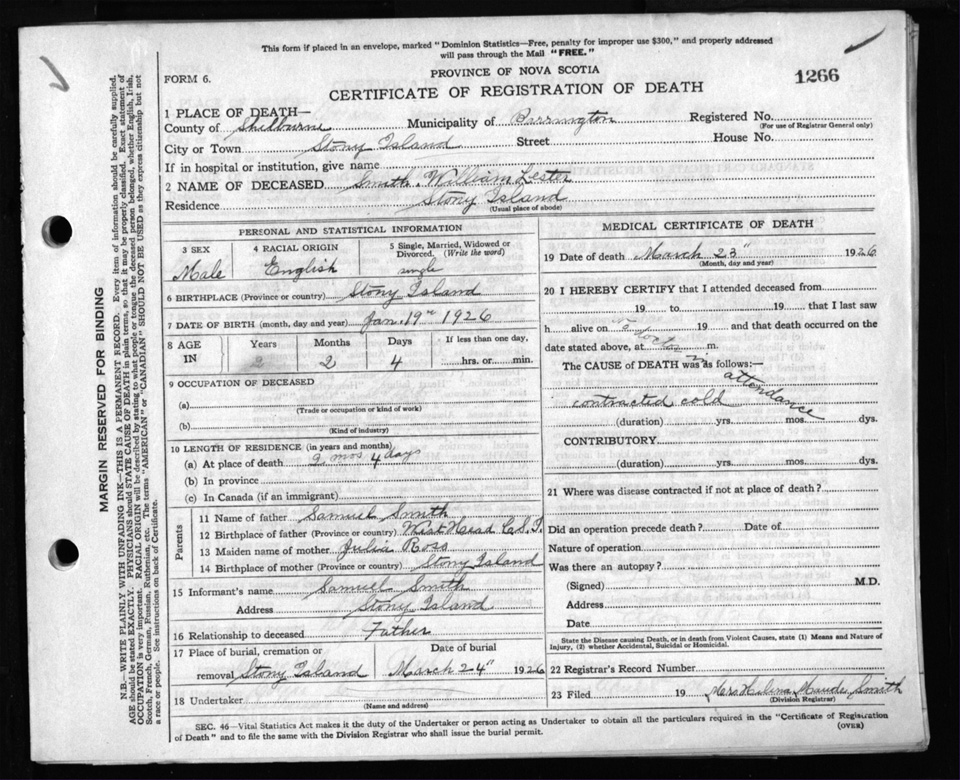 This form if placed in an envelope, marked "Dominion Statistics—Free, penalty for improper use $300," and properly addressed
will pass through the Mail "FREE."
FORM 6.
PROVINCE OF NOVA SCOTIA
1266
CERTIFICATE OF REGISTRATION OF DEATH
1 PLACE OF DEATH—
County of Shelburne Municipality of Barrington Registered No.
(For use of Registrar General only)
City or Town Stony Island Street House No.
If in hospital or institution, give name
2 NAME OF DECEASED. Smith, William Lester
Residence Stony Island
(Usual place of abode)
PERSONAL AND STATISTICAL INFORMATION
3 SEX 4 RACIAL ORIGIN 5 Single, Married, Widowed or
Divorced. (Write the word)
Male English single
6 BIRTHPLACE (Province or country) Stony Island
7 DATE OF BIRTH (month, day and year) Jan. 19th 1926
8 AGE IN Years Months Days If less than one day,
2 2 4 hrs. or min.
9 OCCUPATION OF DECEASED
(a)
(Trade or occupation or kind of work)
(b)
(Kind of industry)
10 LENGTH OF RESIDENCE (in years and months)
(a) At place of death 2 mos 4 days
(b) In province
(c) In Canada (if an immigrant)
Parents
11 Name of father Samuel Smith
12 Birthplace of father (Province or country) West Head C.S.I.
13 Maiden name of mother Julia Ross
14 Birthplace of mother (Province or country) Stony Island
15 Informant's name Samuel Smith
Address Stony Island
16 Relationship to deceased Father
17 Place of burial, cremation or Date of burial
removal Stony Island March 24" 1926
18 Undertaker
(Name and address)
MEDICAL CERTIFICATE OF DEATH
19 Date of death March 23" 1926
(Month, day and year)
20 I HEREBY CERTIFY that I attended deceased from
19 to 19 that I last saw
h alive on 19 and that death occurred on
date stated above, at m.
The CAUSE of DEATH was as follows:—
no doctor in attendance
contracted cold
(duration) yrs. mos. dys.
CONTRIBUTORY
(duration) yrs. mos. dys.
21 Where was disease contracted if not at place of death?
Did an operation precede death? Date of
Nature of operation
Was there an autopsy?
(Signed) M.D.
Address
Date
State the Disease causing Death, or in death from Violent Causes, state (1) Means and Nature of
Injury, (2) whether Accidental, Suicidal or Homicidal.
22 Registrar's Record Number
23 Filed 19 Maude Smith
(Division Registrar)
SEC. 46—Vital Statistics Act makes it the duty of the Undertaker or person acting as Undertaker to obtain all the particulars required in the "Certificate of Registration
of Death" and to file the same with the Division Registrar who shall issue the burial permit.
(OVER)
MARGIN RESERVED FOR BINDING
N.B.—WRITE PLAINLY WITH UNFADING INK—THIS IS A PERMANENT RECORD. Every item of information should be carefully supplied.
AGE should be stated EXACTLY. PHYSICIANS should STATE CAUSE OF DEATH in plain terms, so that it may be properly classified. Exact statement of
OCCUPATION is very important. RACIAL ORIGIN will be described by stating to what people or tongue the deceased person belonged, whether English, Irish,
Scotch, French, German, Russian, Ruthenian, etc. The terms "AMERICAN" or "CANADIAN" SHOULD NOT BE USED as they express citizenship but not
a race or people. See instructions on back of Certificate.